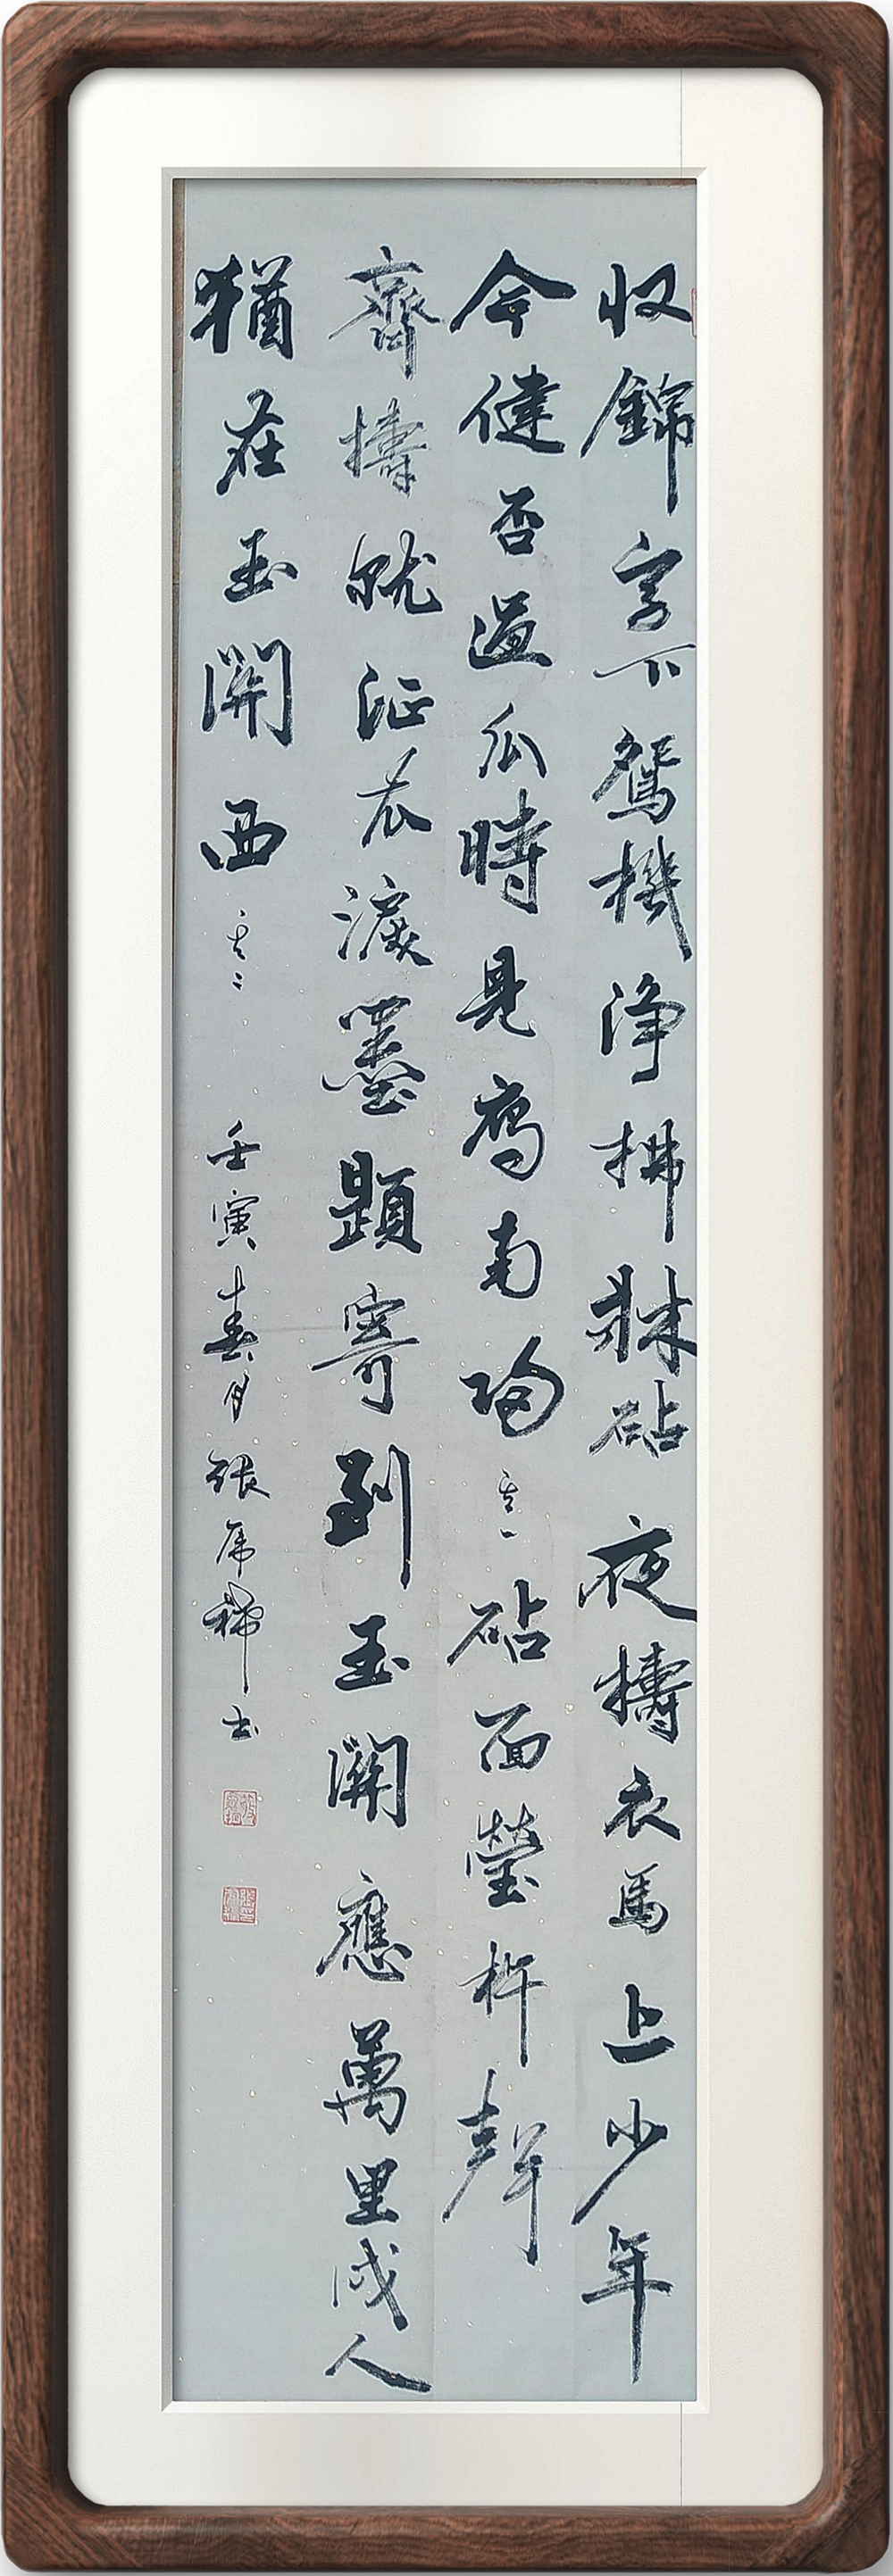 收錦字下鴛機淨拂牀砧夜擣衣馬上少年
今健否過瓜時見鴈南歸其一砧面瑩杵聲
齊擣就征衣淚墨題寄到玉關應萬里戍人
猶在玉關西其二
壬寅春月張書